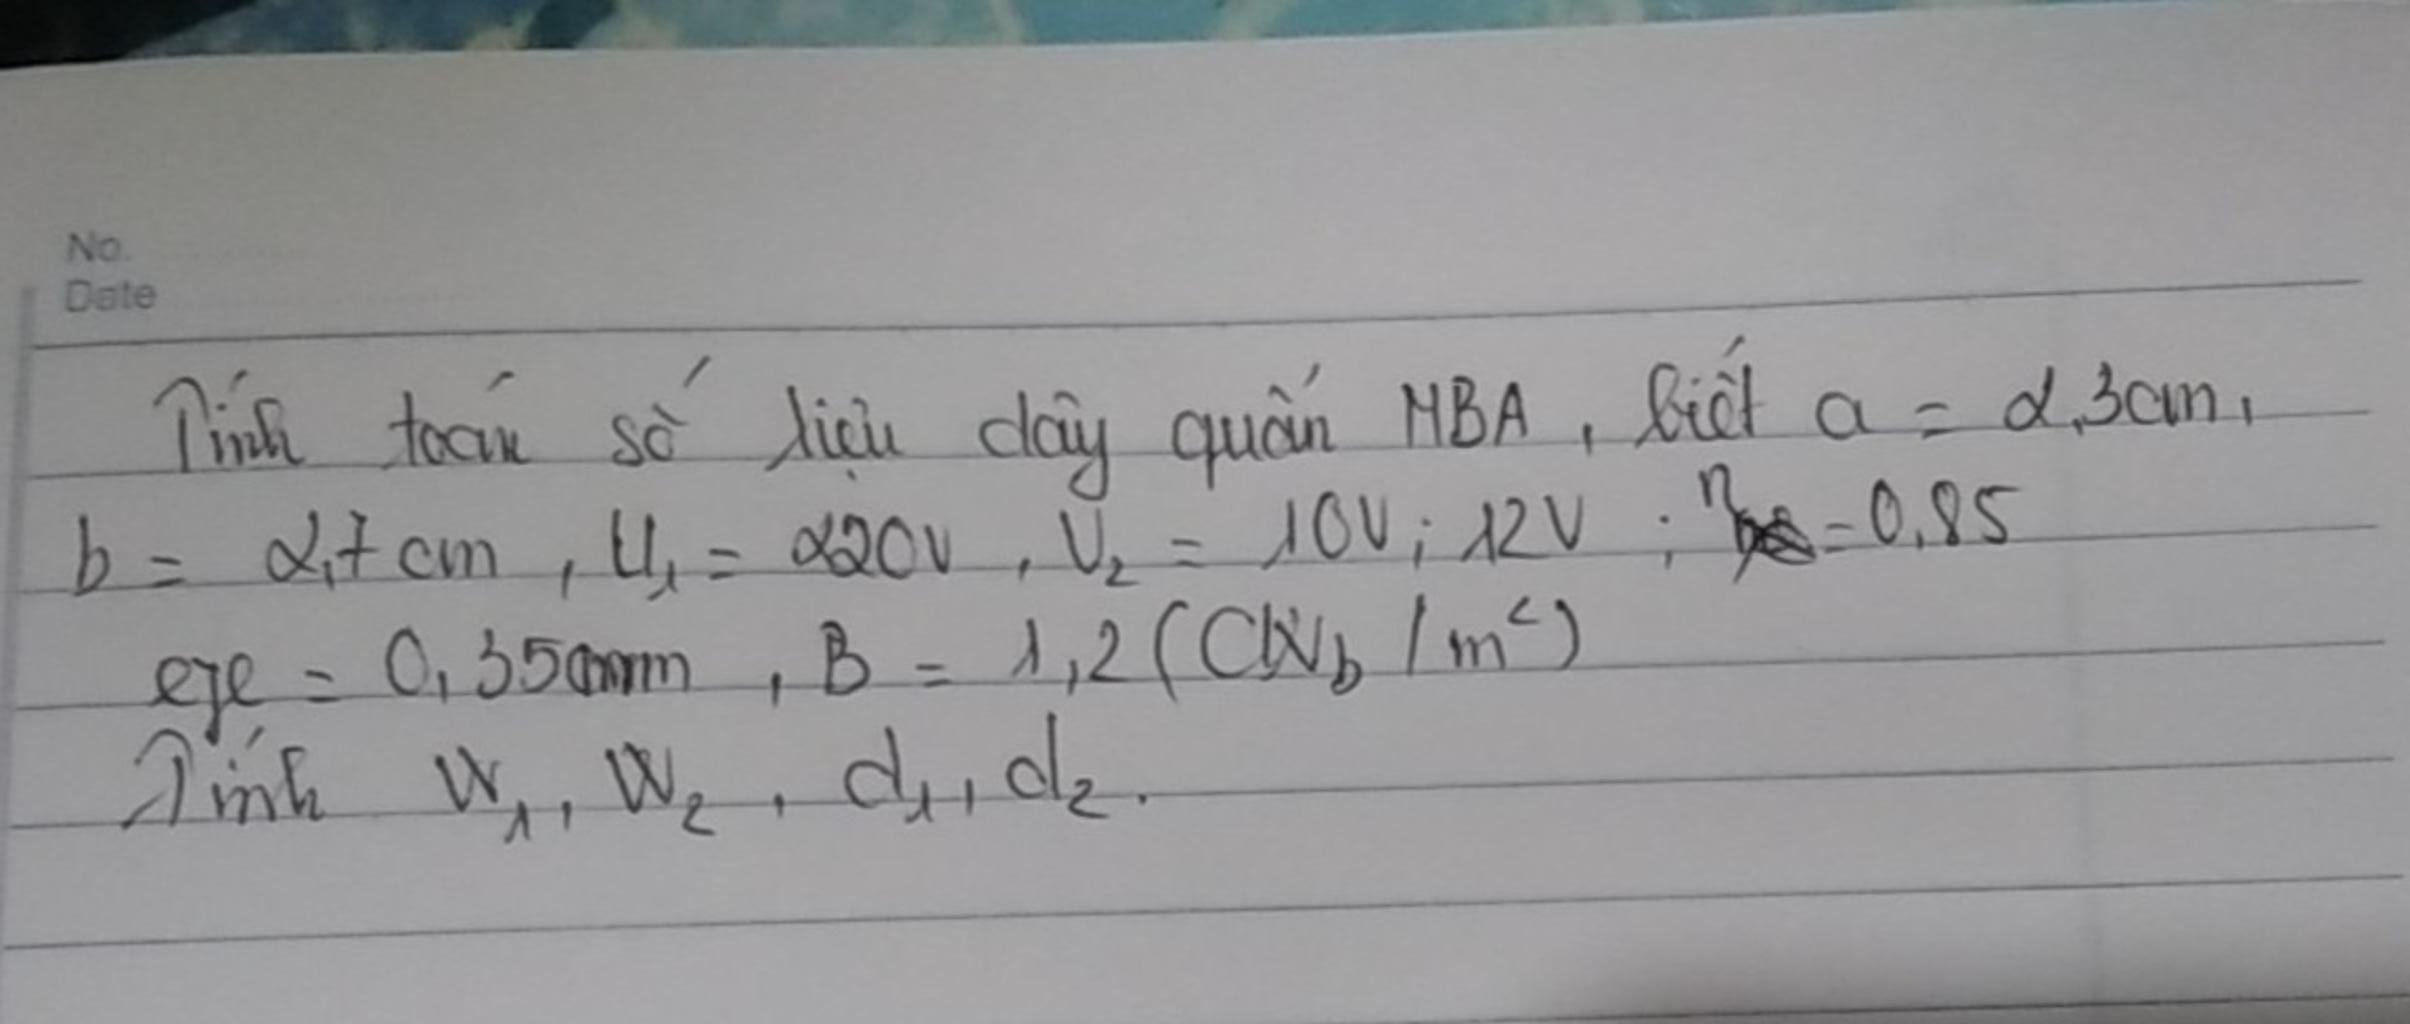 No.
Date
Tính toán số liệu dây quấn MBA, biết a = 2,3cm,
b = 2,7 cm, U₁ = 220V, U₂ = 10V; 12V ; η = 0,85
eje = 0,35mm, B = 1,2 (Wb/m²)
Tính W₁, W₂, d₁, d₂.